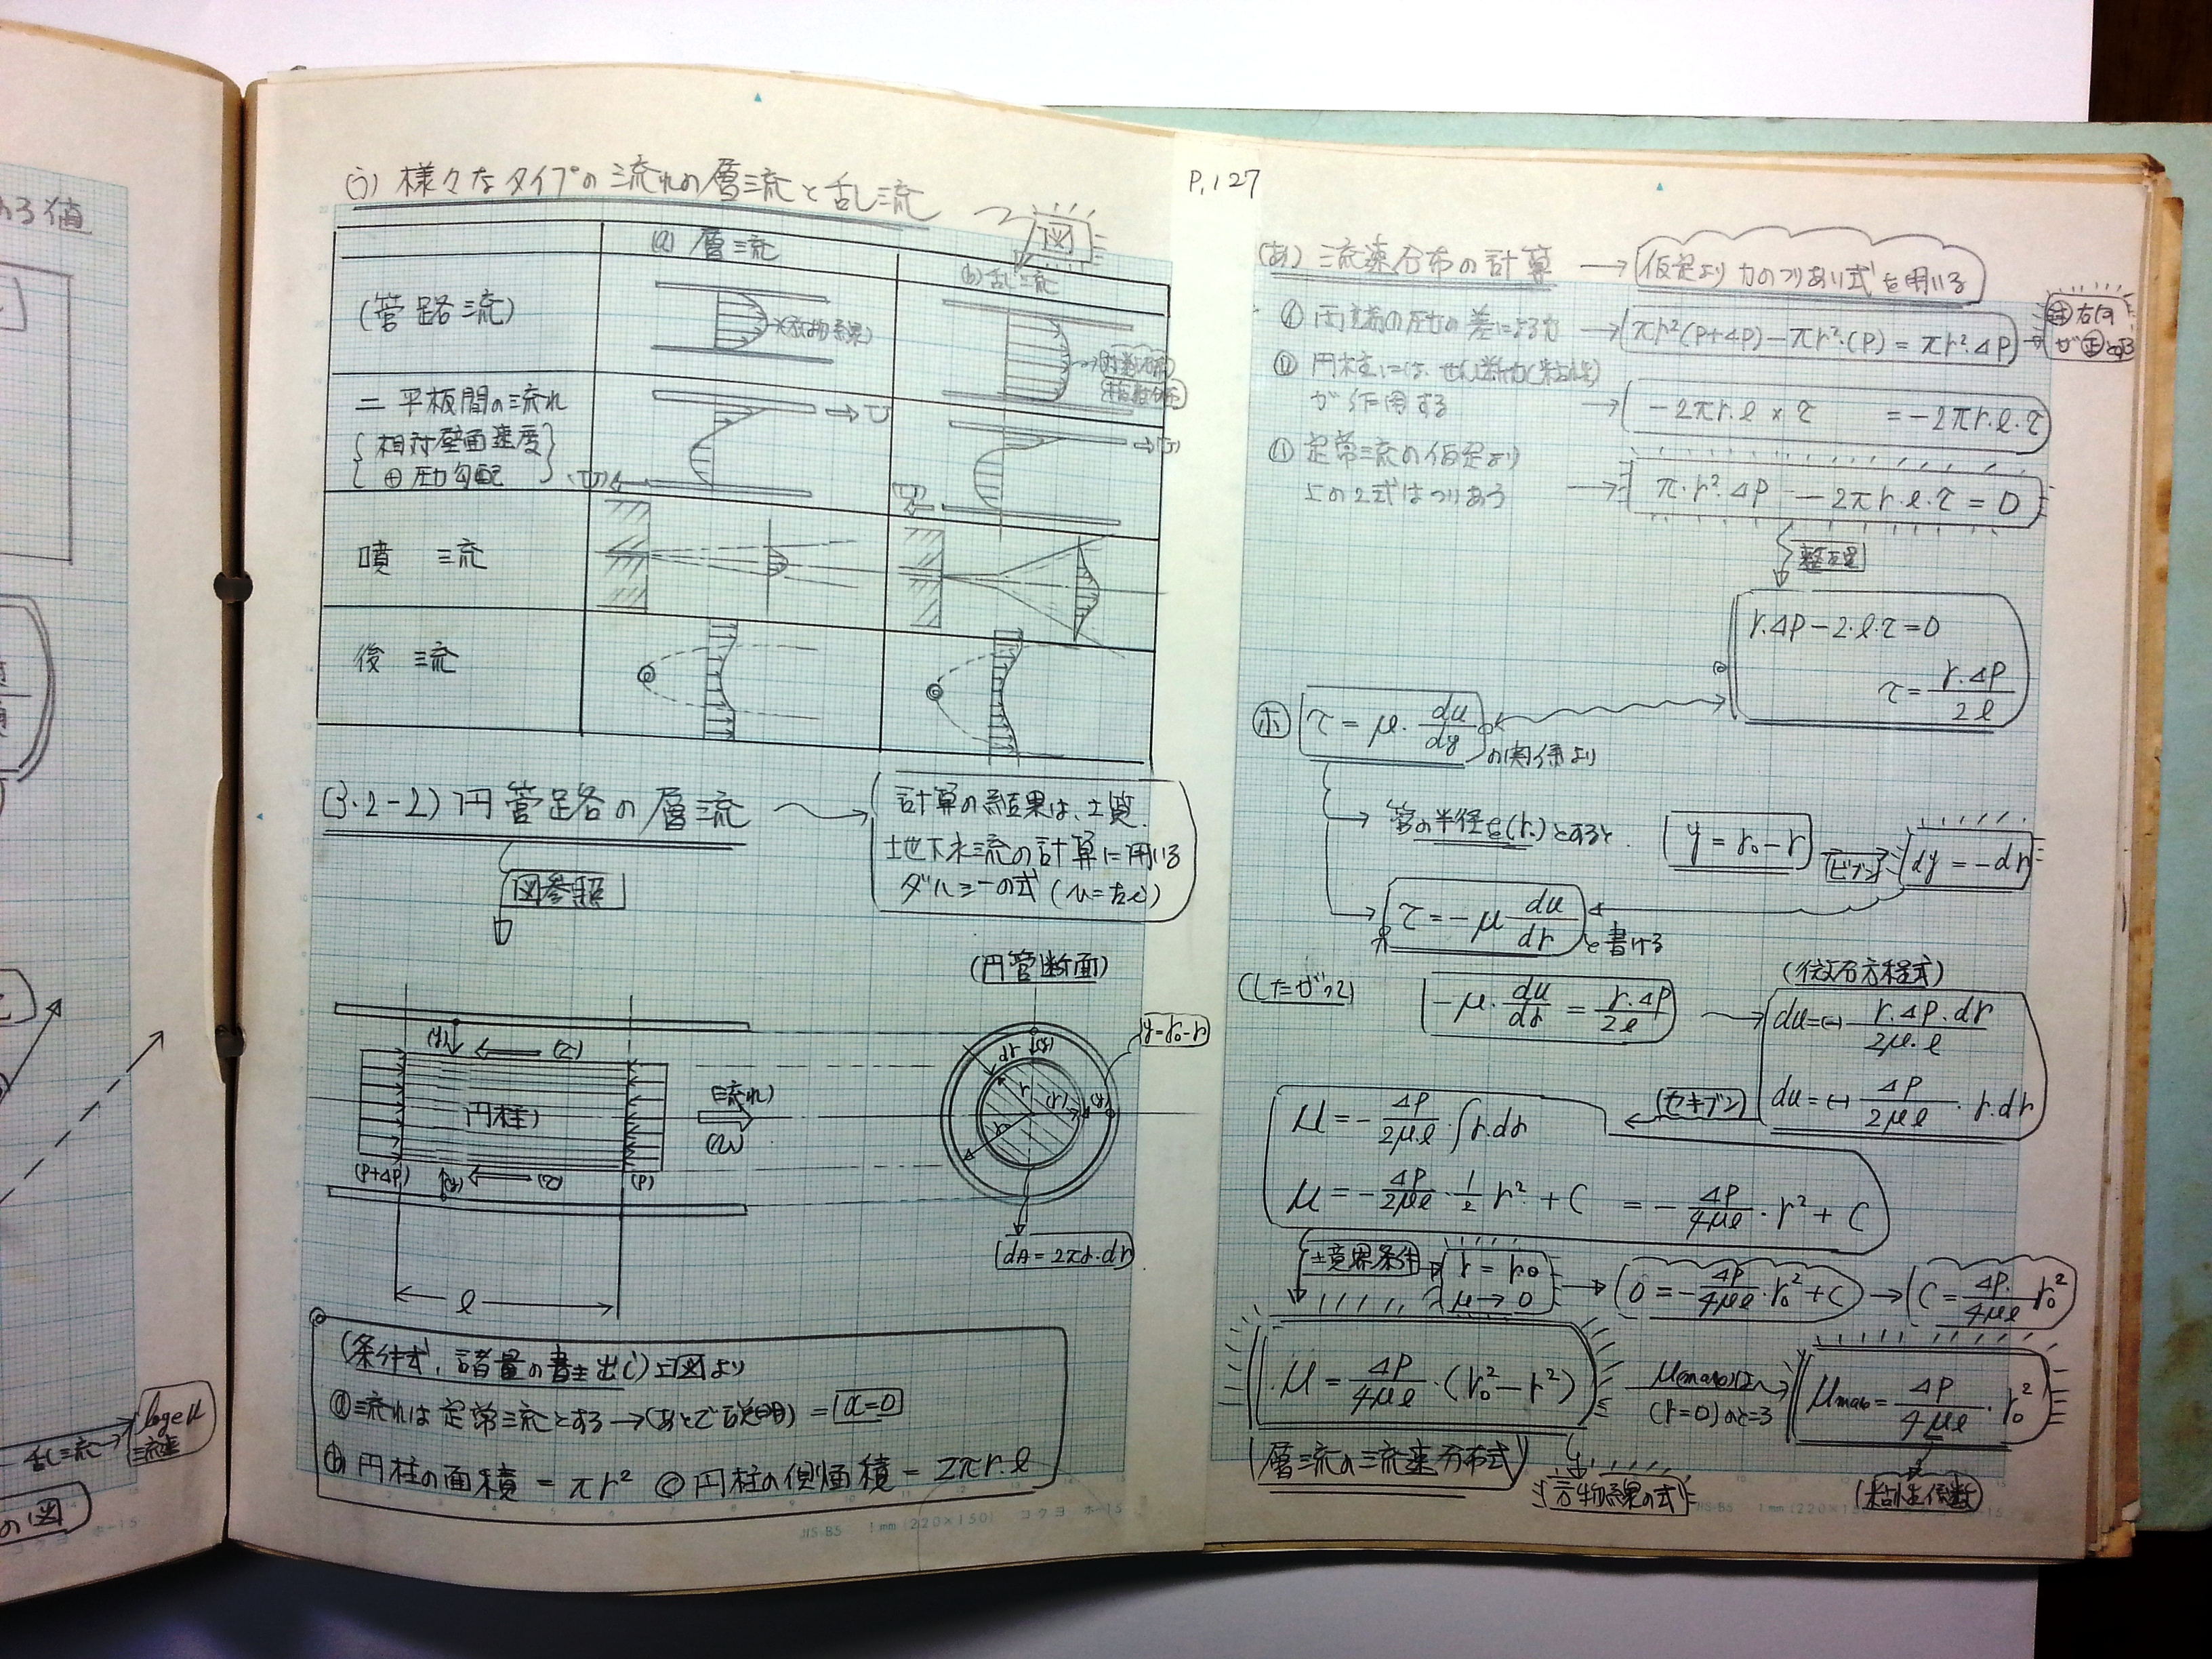 ある値
乱流→
loge μ
流速
の図)
(う) 様々なタイプの流れの層流と乱流
図
(a) 層流
(b) 乱流
(管路流)
(放物線)
対数分布
指数分布
二平板間の流れ
{相対壁面速度
⊕圧力勾配}
(U)
→U
噴流
後流
(3・2-2) 円管路の層流
計算の結果は、土質、
地下水流の計算に用いる
ダルシーの式
図参照
(円管断面)
y=r₀-r
(y) (τ)
(円柱)
(流れ)
(u)
(P+ΔP) (y) (τ) (P)
dA=2πr・dr
l
(条件式、諸量の書き出し)上図より
ⓐ流れは定常流とする→(あとで説明) = a=0
ⓑ円柱の面積 = πr² ⓒ円柱の側面積 = 2πr・l
JIS-B5 1mm(220×150) コクヨ ホ-15
P.127
(あ) 流速分布の計算 → 仮定より力のつりあい式を用いる
㋑ 両端の圧力の差による力 → πr²(P+ΔP)-πr²・(P) = πr²・ΔP
右向
が㊣とする
㋺ 円柱には、せん断力(粘性)
が作用する → -2πr・l × τ = -2πr・l・τ
㋩ 定常流の仮定より
上の2式はつりあう → π・r²・ΔP - 2πr・l・τ = 0
整理
r・ΔP-2・l・τ=0
τ = r・ΔP / 2l
㋭ τ = μ・du/dy の関係より
管の半径を(r₀)とすると、 y = r₀-r ビブン dy = -dr
τ = -μ du/dr と書ける
(したがって) -μ・du/dr = r・ΔP/2l
(微分方程式)
du=(-) r・ΔP・dr / 2μ・l
du=(-) ΔP/2μl・r・dr
(セキブン)
μ = -ΔP/2μl・∫r・dr
μ = -ΔP/2μl・1/2 r² + C = -ΔP/4μl・r² + C
境界条件 r = r₀
μ → 0
0 = -ΔP/4μl・r₀²+C → C = ΔP/4μl r₀²
μ = ΔP/4μl・(r₀²-r²)
μmaxは
(r=0)のとき
μmax = ΔP/4μl・r₀²
(層流の流速分布式)
放物線の式
(粘性係数)
JIS-B5 1mm(220×150)